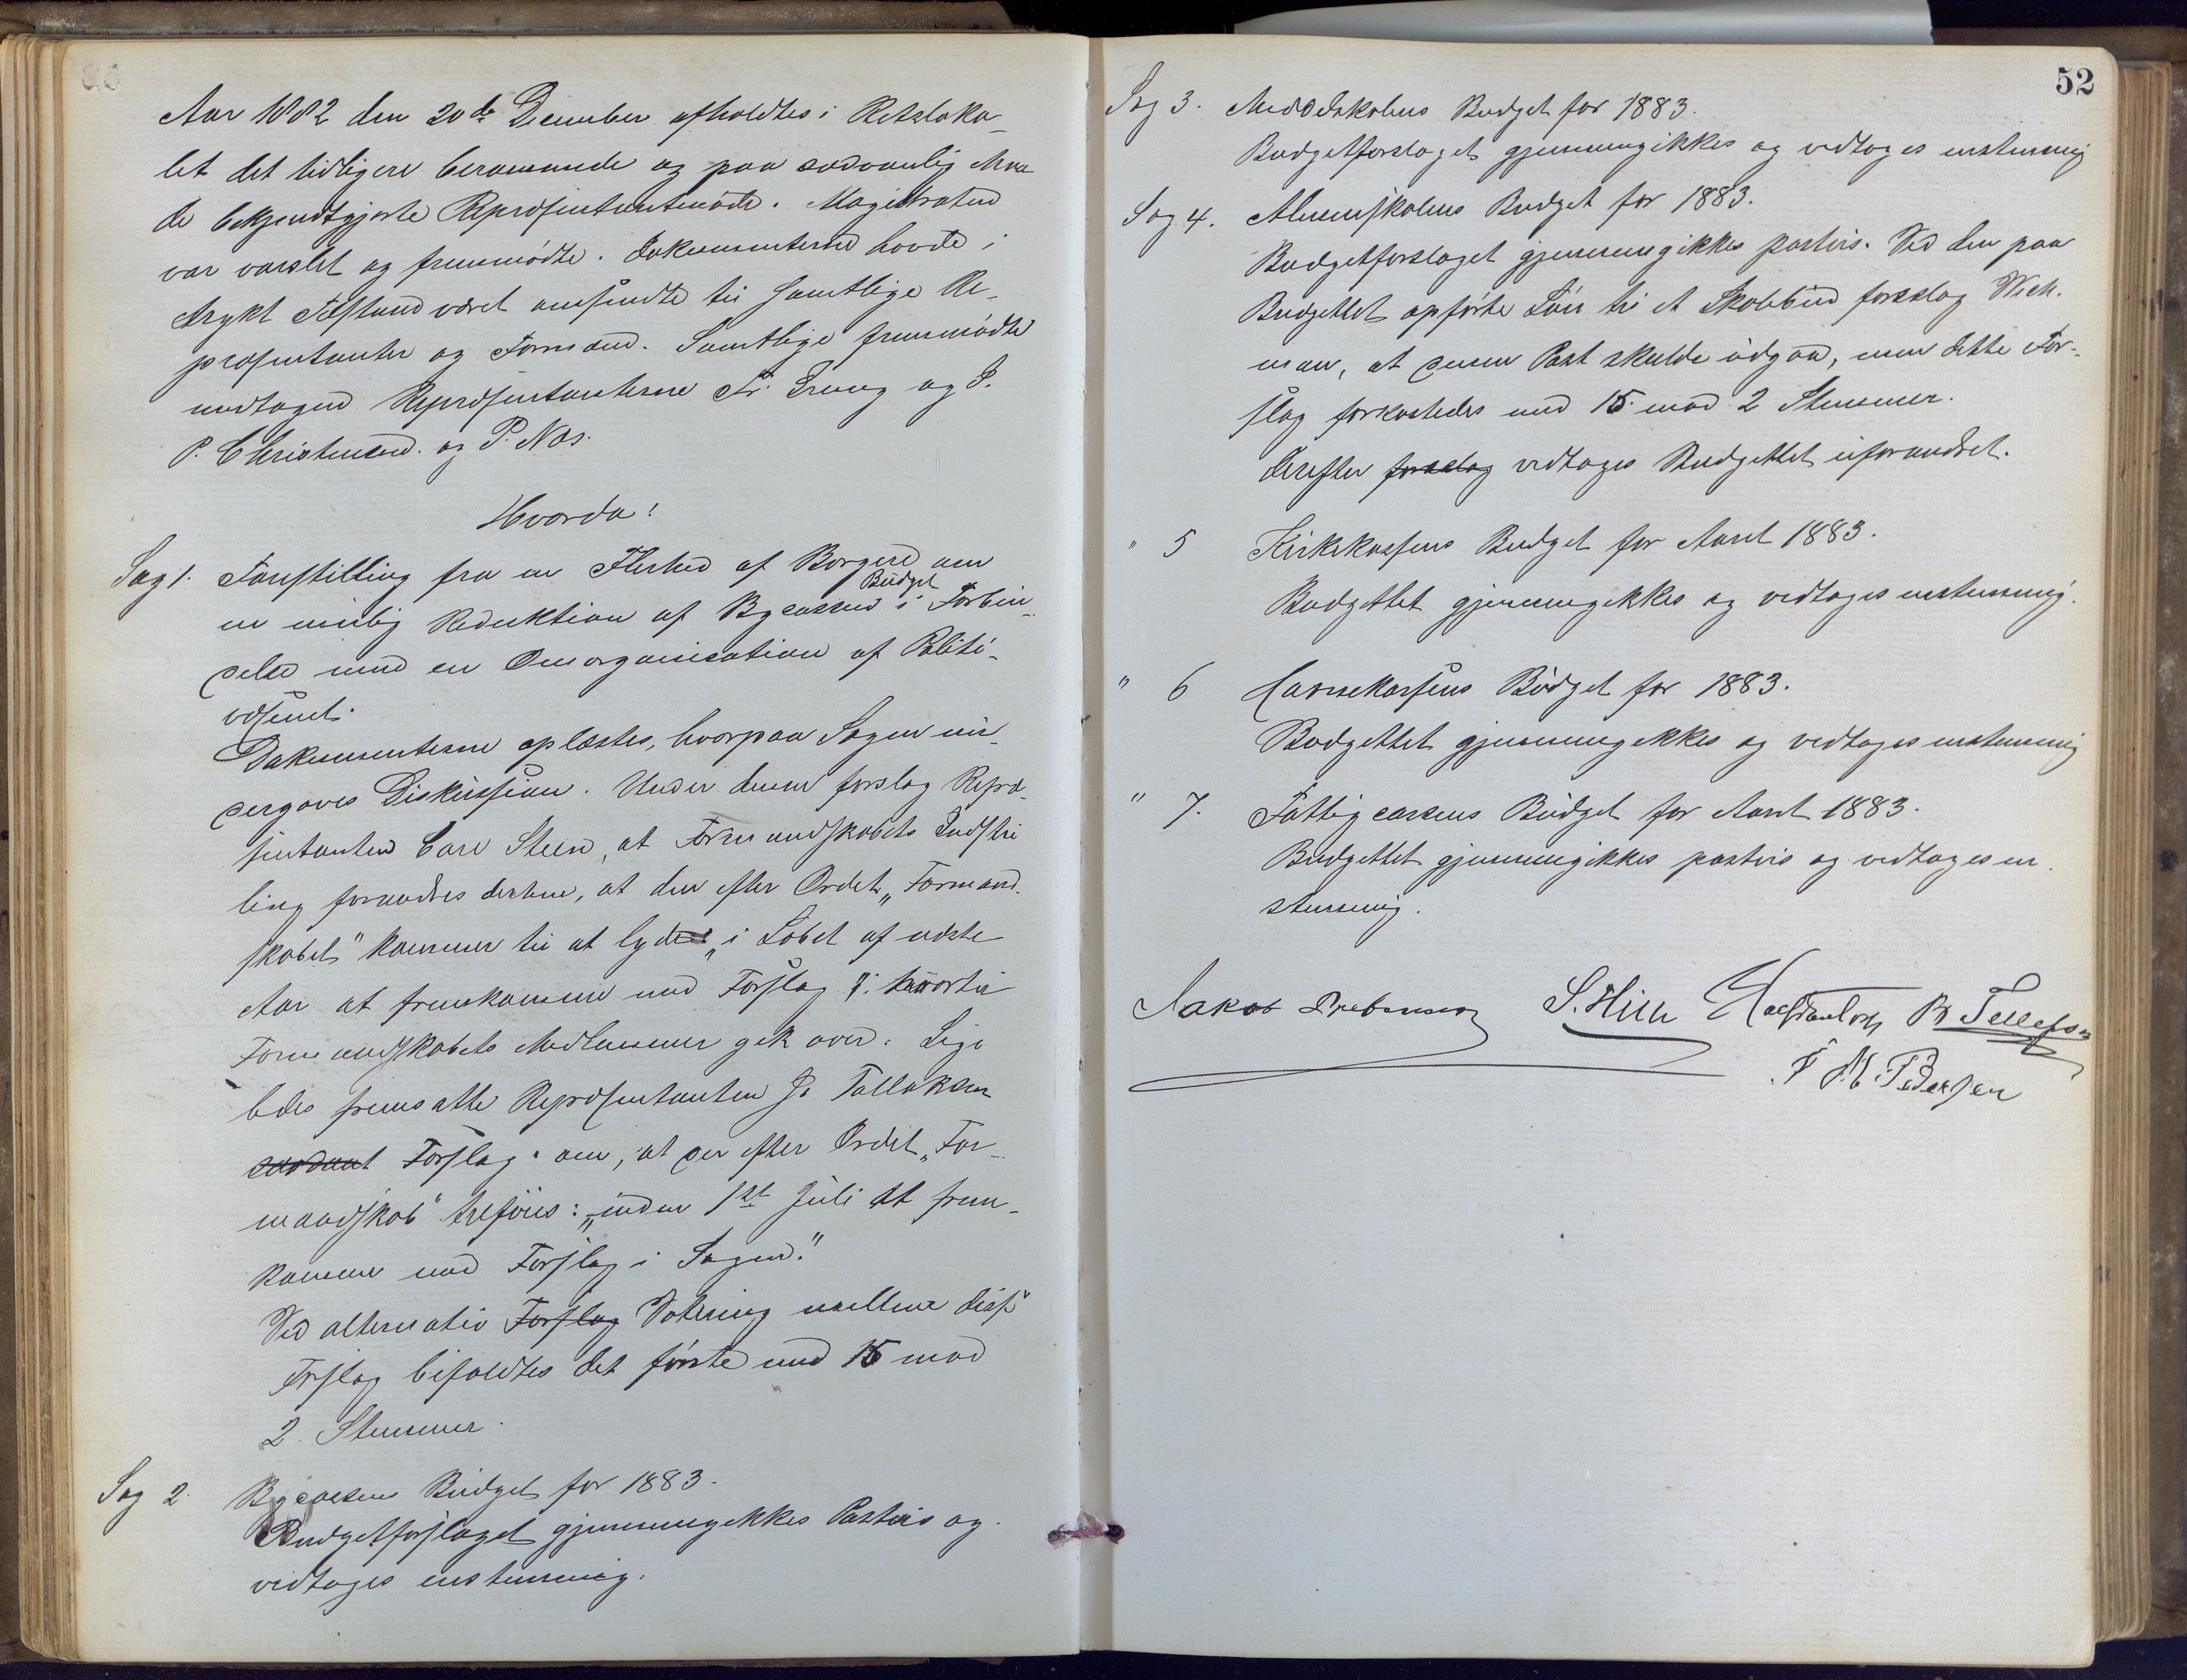 Aar 1882 den 20de December afholdtes i Retsloka-
let det tidligere berammede og paa sædvanlig Maa
de bekjendtgjorte Repræsentantmøde. Magistraten
var varslet og fremmødte. Dokumenterne havde i
trykt Tilstand været omsendte til samtlige Re-
præsentanter og Formænd. Samtlige fremmødte
undtagen Repræsentanterne Fr. Treng og J.
P. Christensen og P. Næs.
Hvorda:
Sag 1. Forestilling fra en Flerhed af Borgere om
en mulig Reduktion af Bycassens Budget i Forbin
delse med en Omorganisation af Politi-
væsenet.
Dokumenterne oplæstes, hvorpaa Sagen un-
dergaves Diskussion. Under denne forslog Repræ-
sentanten Carl Steen, at Formandskabets Indstil
ling forandres derhen, at den efter Ordet „Formand
skabet" kommer til at lyde: „i Løbet af næste
Aar at fremkomme med Forslag": hvortil
Formandskabets Medlemmer gik over. Lige
ledes fremsatte Repræsentanten Js Tallaksen
saadant Forslag om, at der efter Ordet „For-
mandskab" tilføies: „inden 1ste Juli at frem-
komme med Forslag i Sagen."
Ved alternativ Forslag Votering mellem disse
Forslag bifaldtes det første med 15 mod
2 Stemmer.
Sag 2. Bycassens Budget for 1883.
Budgetforslaget gjennemgikkes Postvis og
vedtoges enstemmig.
52
Sag 3. Middelskolens Budget for 1883.
Budgetforslaget gjennemgikkes og vedtoges enstemmig
Sag 4. Almueskolens Budget for 1883.
Budgetforslaget gjennemgikkes postvis. Ved den paa
Budgettet opførte Løn til et Skolebud forslog Wich.
man, at denne Post skulde udgaa, men dette For-
slag forkastedes med 15 mod 2 Stemmer.
Derefter forslog vedtoges Budgettet uforandret.
" 5 Kirkekassens Budget for Aaret 1883.
Budgettet gjennemgikkes og vedtoges enstemmig.
" 6 Havnekassens Budget for 1883.
Budgettet gjennemgikkes og vedtoges enstemmig
" 7. Fattigcassens Budget for Aaret 1883.
Budgettet gjennemgikkes postvis og vedtoges en
stemmig.
Jakob Prebensen S. Hill B Tellefsen
F M Pedersen